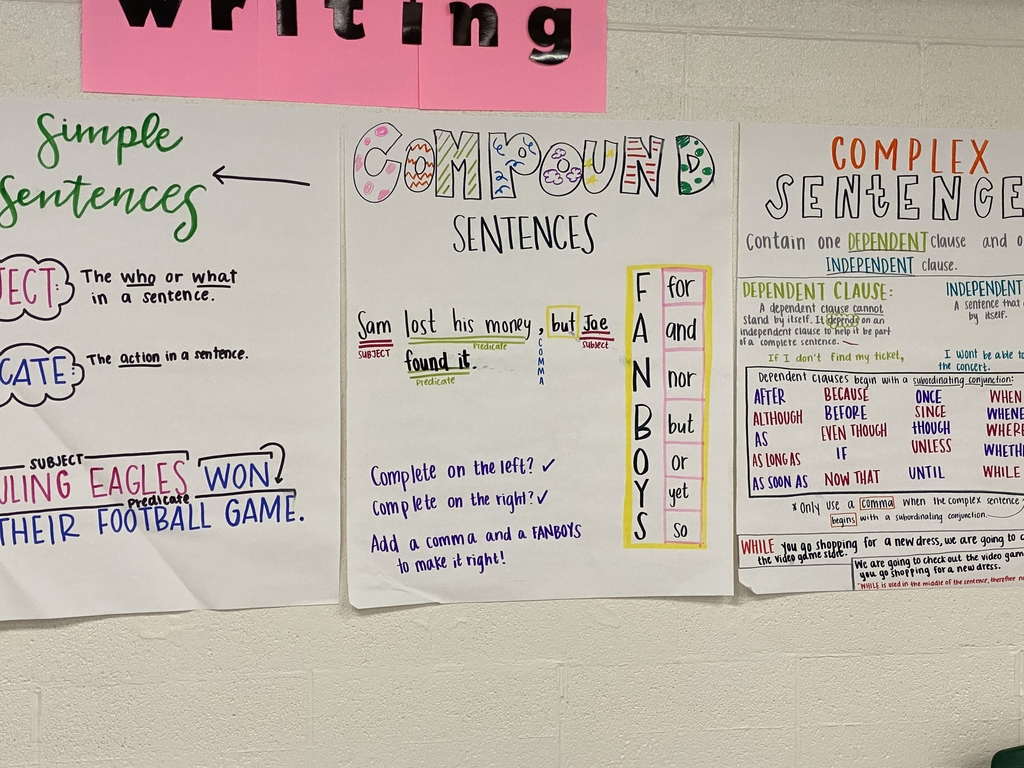 writing
Simple
Sentences
JECT:
The who or what
in a sentence.
CATE:
The action in a sentence.
SUBJECT
LING EAGLES WON
Predicate
THEIR FOOTBALL GAME.
COMPOUND
SENTENCES
Sam lost his money, but Joe
SUBJECT
Predicate
COMMA
Subject
found it.
Predicate
F for
A and
N nor
B but
O or
Y yet
S so
Complete on the left? ✓
Complete on the right? ✓
Add a comma and a FANBOYS
to make it right!
COMPLEX
SENTENCE
Contain one DEPENDENT clause and o
INDEPENDENT clause.
DEPENDENT CLAUSE:
A dependent clause cannot
stand by itself. It depends on an
independent clause to help it be part
of a complete sentence.
If I don't find my ticket,
INDEPENDENT
A sentence that c
by itself.
I wont be able to
the concert.
Dependent clauses begin with a subordinating conjunction:
AFTER BECAUSE ONCE WHEN
ALTHOUGH BEFORE SINCE WHENE
AS EVEN THOUGH THOUGH WHERE
AS LONG AS IF UNLESS WHETH
AS SOON AS NOW THAT UNTIL WHILE
*Only use a comma when the complex sentence
begins with a subordinating conjunction.
WHILE you go shopping for a new dress, we are going to c
the video game store.
We are going to check out the video gam
you go shopping for a new dress.
*WHILE is used in the middle of the sentence, therefore no